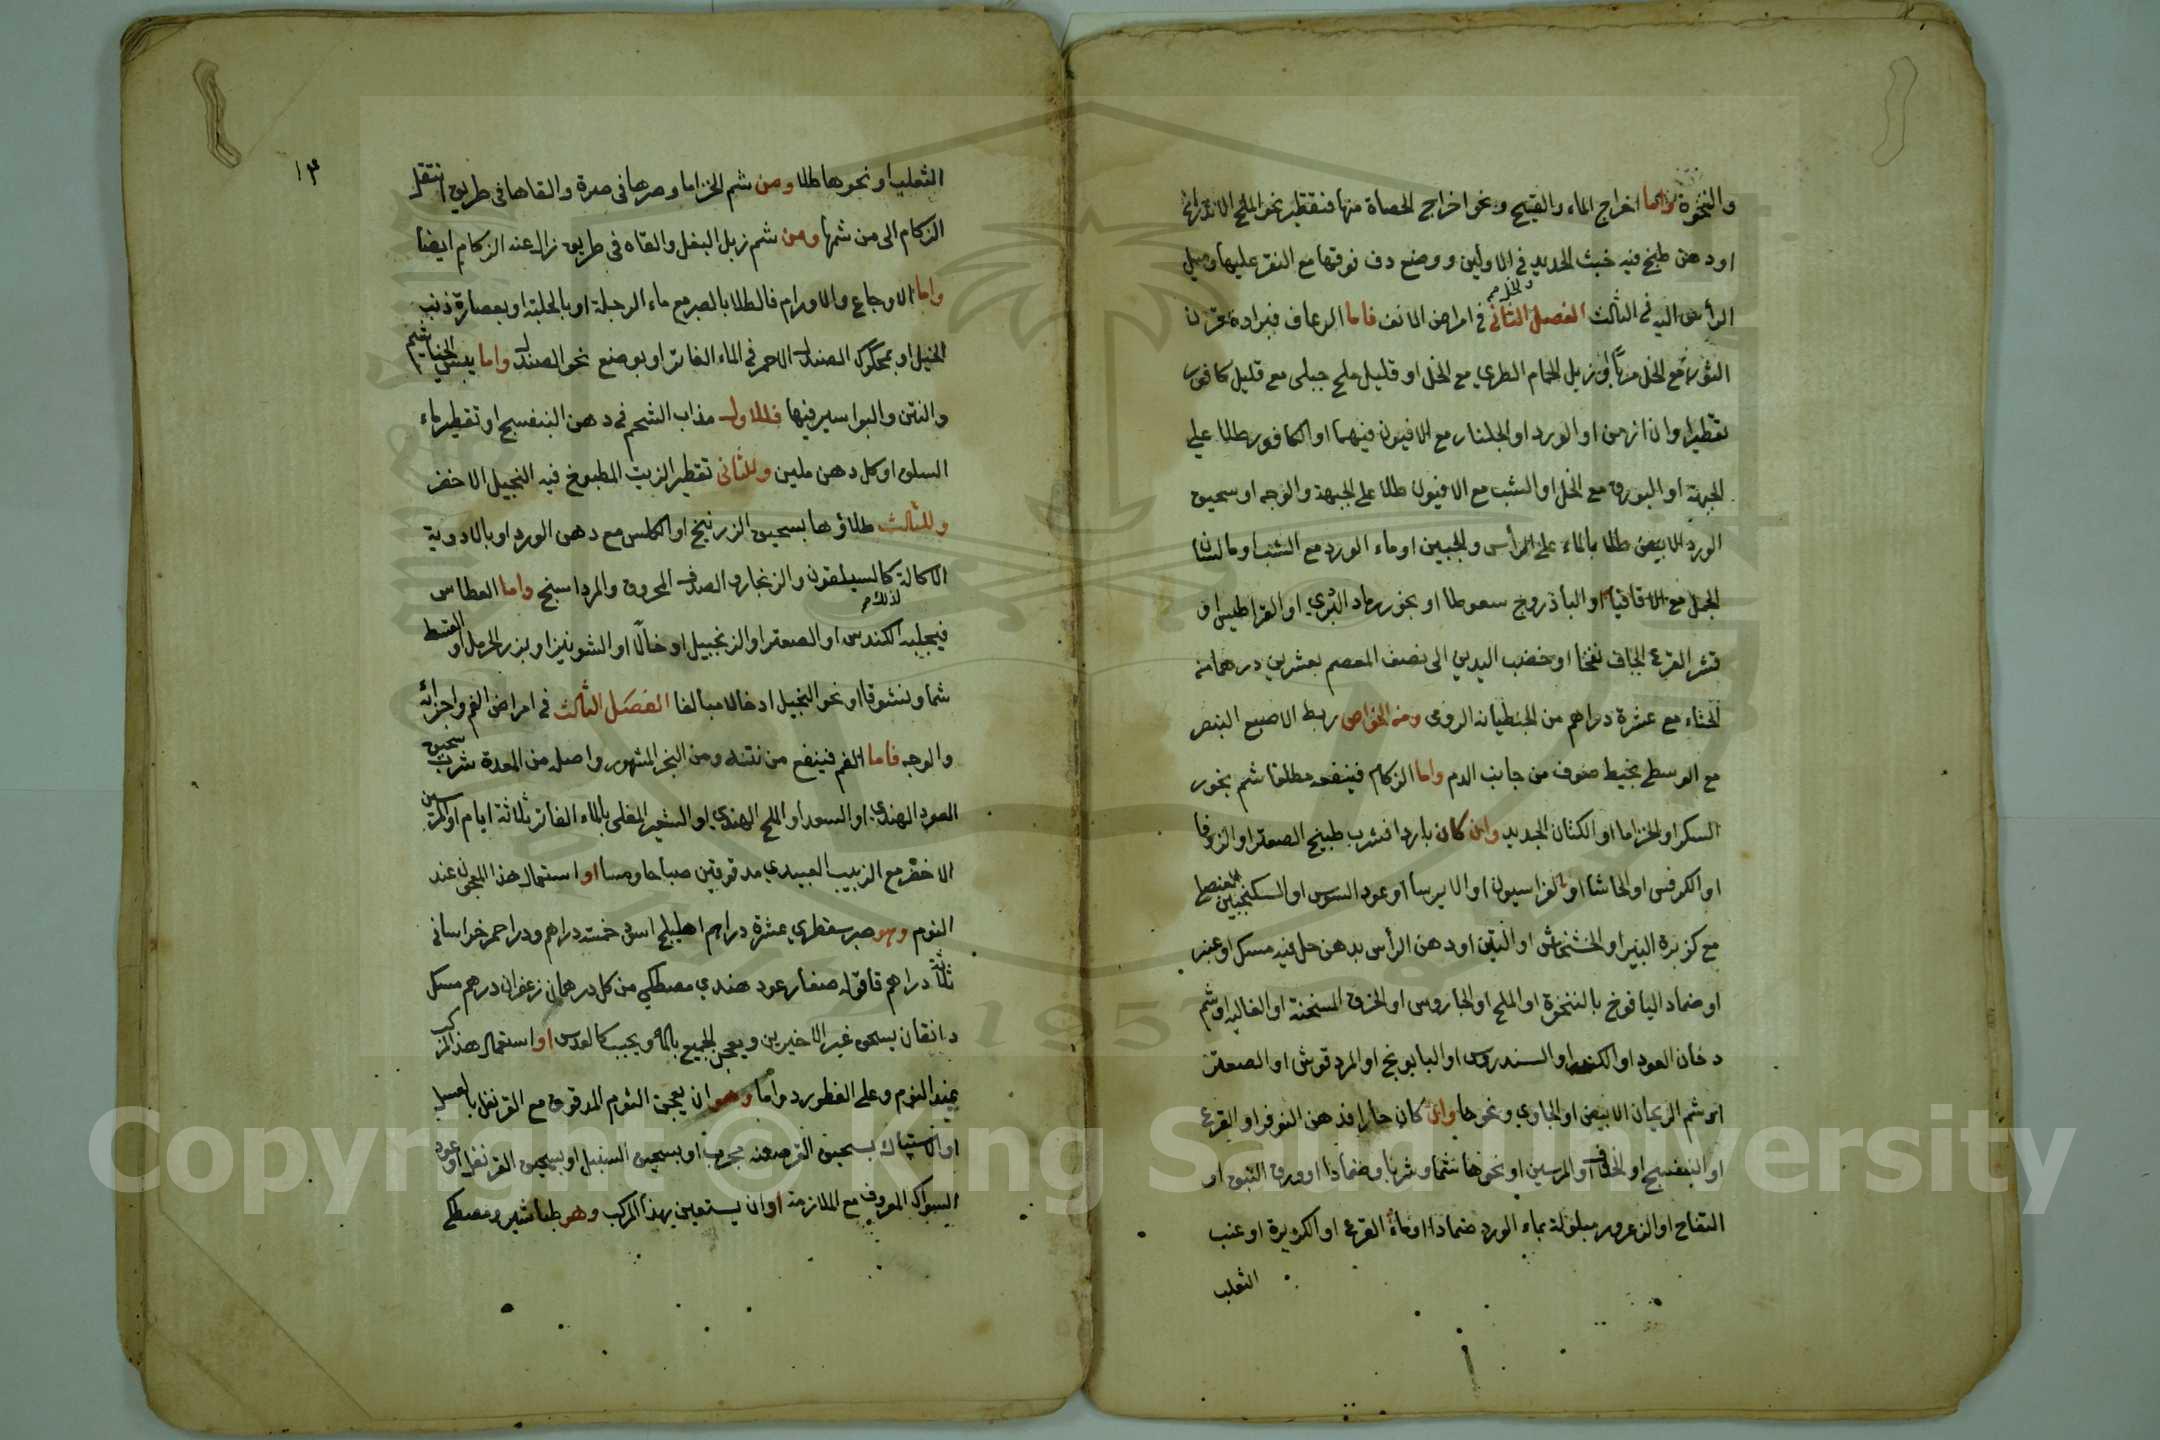 والنخوة واما اخراج الماء والقيح ونحو اخراج الحصاة منها فنقطير نحو الملح الاندراني
او دهن طبخ فيه خبث الحديد في الاولين ووضع دف فوقها مع النقر عليها وميل
الرأس اليه في الثالث الفصل الثاني في امراض الانف فاما الرعاف فبرادة قرن
الثور مع الخل مزيل الحمام الطري مع الخل او قليل ملح جبلي مع قليل كافور
تقطيرا وان ازمن او الورد او الجلنار مع الافيون فيهما او الكافور طلا على
الجبهة او البورق مع الخل او الشب مع الافيون طلا على الجبهة والوجه او سحيق
الورد الابيض طلا بالماء على الرأس والجبين او ماء الورد مع الشب او مالسان
الحمل مع الاقاقيا او الباذروج سعوطا او بخور رماد البردي او القراطيس او
قشر القرع الجاف نفخا او خضب اليدين الى نصف المعصم بعشرين درهما من
الحناء مع عشرة دراهم من الجنطيانه الرومي ومن الخواص ربط الاصبع البنصر
مع الوسطى بخيط صوف من جانب الدم واما الزكام فينفعه مطلقا شم بخور
السكر او الخزاما او الكتان الجديد وان كان باردا فشرب طبيخ الصعتر او الزوفا
او الكرفس او الحاشا او الفراسيون او الايرسا او عود السوس او السكنجبين العنصلي
مع كزبرة البير او الخشخاش او التين او دهن الرأس بدهن حل فيه مسك او عنبر
او ضماد اليافوخ بالننخوة او الملح او الجاورس او الخرق المسخنة او الغاليه او شم
دخان العود او الكندر او السندروس او البابونج او المردقوش او الصعتر
او شم الريحان الابيض او الجاوي ونحوها وان كان حارا فدهن النوفر او القرع
او البنفسج او الخلاف او المرسين او نحوها شما وشربا وضمادا او ورق النبق او
التفاح او الزعرور مبلولة بماء الورد ضمادا او ماء القرع او الكزبرة او عنب
الثعلب
١٣
الثعلب او نحوها طلا ومن شم الخزاما وصرها في صرة والقاها في طريق انتقل
الزكام الى من شمها ومن شم زبل البغل والقاه في طريق زال عنه الزكام ايضا
واما الاوجاع والاورام فالطلا بالصبر مع ماء الرجلة او بالحلبة او بعصارة ذنب
الخيل او بمحكوك الصندل الاحمر في الماء الفاتر او بوضع نحو الصندل واما يبس الخياشيم
والنتن والبواسير فيها فللاول مذاب الشحم في دهن البنفسج او تقطير ماء
السلق او كل دهن ملين وللثاني تقطير الزيت المطبوخ فيه النجيل الاخضر
وللثالث طلاؤها بسحيق الزرنيخ او الكلس مع دهن الورد او بالادوية
الاكالة كالسيلقون والزنجار والصدف المحروق والمرداسنج واما العطاس
فيجلبه الكندس او الصعتر او الزنجبيل او خالا او الشونيز او بزر الحرمل او القسط
شما ونشوقا او نحو النجيل ادخالا مبالغا الفصل الثالث في امراض الفم واجزائه
والوجه فاما الفم فينفع من نتنه ومن البخر المشهور واصله من المعدة شرب سحيق
العود الهندي او السعد او الملح الهندي او الشعير المغلى بالماء الفاتر ثلاثة ايام او اكل
الاخضر مع الزبيب العبيدي مدقوقين صباحا ومسا او استعمال هذا المعجون عند
النوم وهو صبر سقطري عشرة دراهم اهليلج اسود خمسة دراهم ودار حمر خراساني
ثلاثة دراهم قاقوله صغار عود هندي مصطكي من كل درهمان زعفران درهم مسك
دانقان يسحق غير الاخيرين ويعجن الجميع بالماء ويحبب كالعدس او استعمال هذا المركب
عند النوم وعلى الفطور دواما وهو ان يعجن الثوم المدقوق مع القرنفل بالعسل
او الاستياك بسحيق القرصعنه مجرب او بسحيق السنبل او بسحيق القرنفل او عود
السواك المعروف مع الملازمة او ان يستعين بهذا المركب وهو طباشير ومصطكي
Copyright © King Saud University
1957